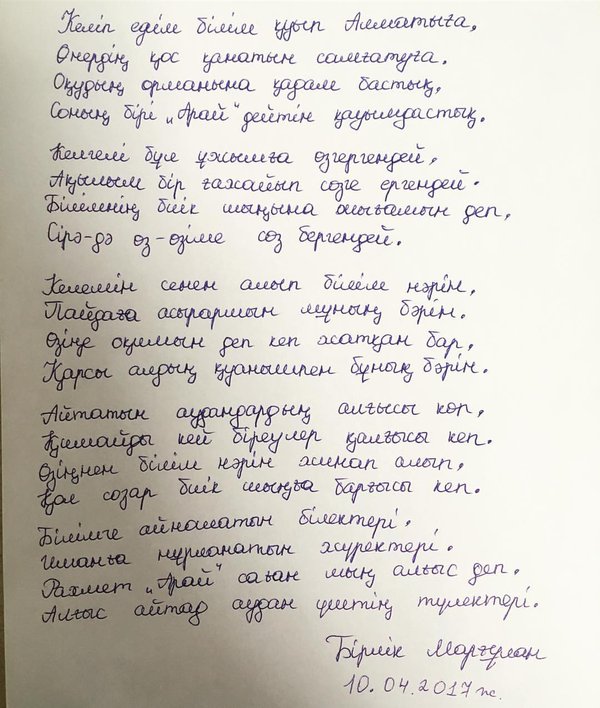 Келіп едім білім қуып Алматыға,
Өнердің қос қанатын самғатуға.
Оқудың орманына қадам бастық,
Соның бірі „Арай" дейтін қауымдастық.
Келгелі бұл ұжымға өзгергендей,
Ақылым бір ғажайып сөзге ергендей.
Білімнің биік шыңына шығамын деп,
Сірә-дә өз-өзіме сөз бергендей.
Келемін сенен алып білім нәрін,
Пайдаға асырармын мұның бәрін.
Өзіңе оқимын деп кеп жатқан бар,
Қарсы алдың қуанышпен бұның бәрін.
Айтатын аудандардың алғысы көп,
Қимайды кей біреулер қалғысы кеп.
Өзіңнен білім нәрін жинап алып,
Қол созар биік шыңға барғысы кеп.
Білімге айналатын білектері.
Иманға нұрланатын жүректері.
Рахмет „Арай" саған мың алғыс деп.
Алғыс айтад аудан үйетің түлектері.
Бірлік Марғұлан
10.04.2017ж.